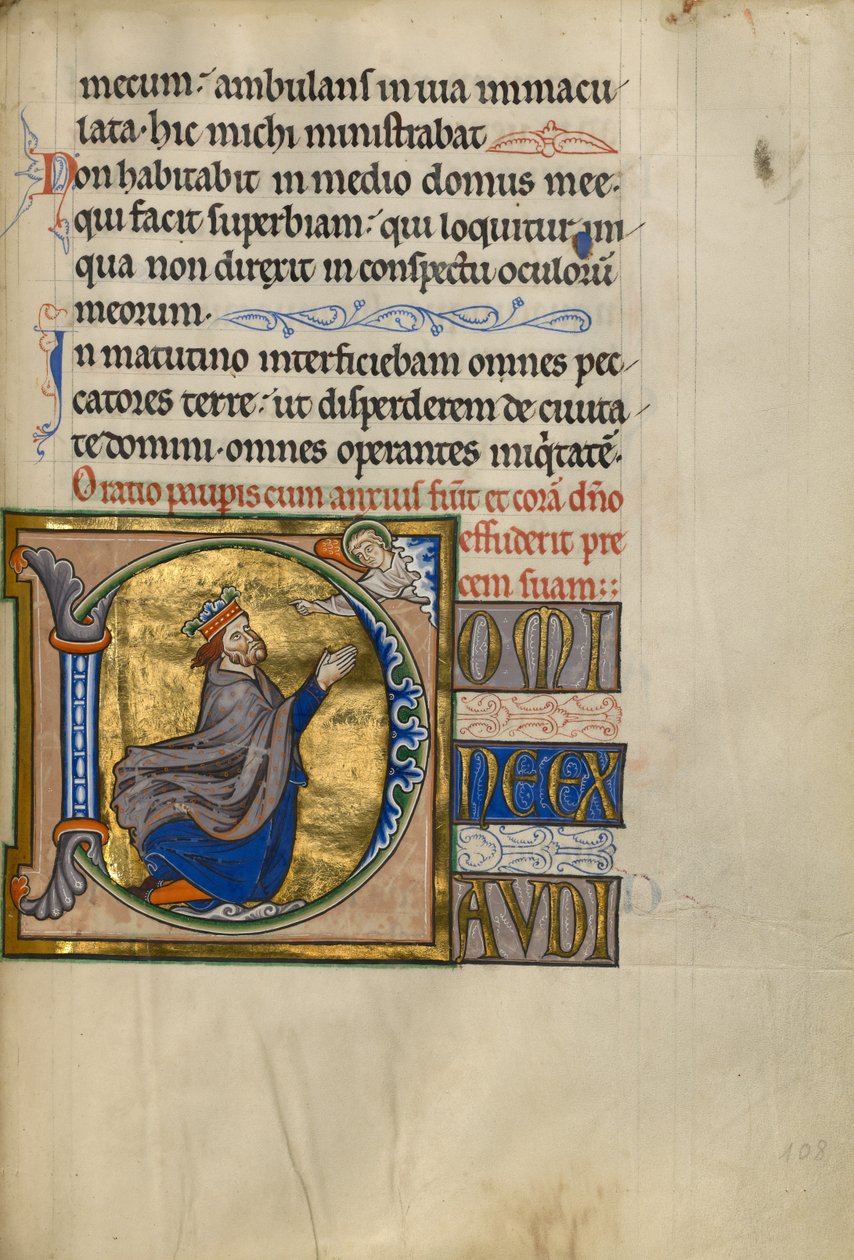 mecum. ambulans in uia immacu
lata. hic michi ministrabat
Non habitabit in medio domus mee.
qui facit superbiam. qui loquitur ini
qua non direxit in conspectu oculorū
meorum.
In matutino interficiebam omnes pec
catores terre. ut disperderem de ciuita
te domini. omnes operantes iniqͥtatē.
Oratio paupis cum anxius fūit et corā dn̄o
effuderit pre
cem suam::
D OMI
NE EX
AVDI
108